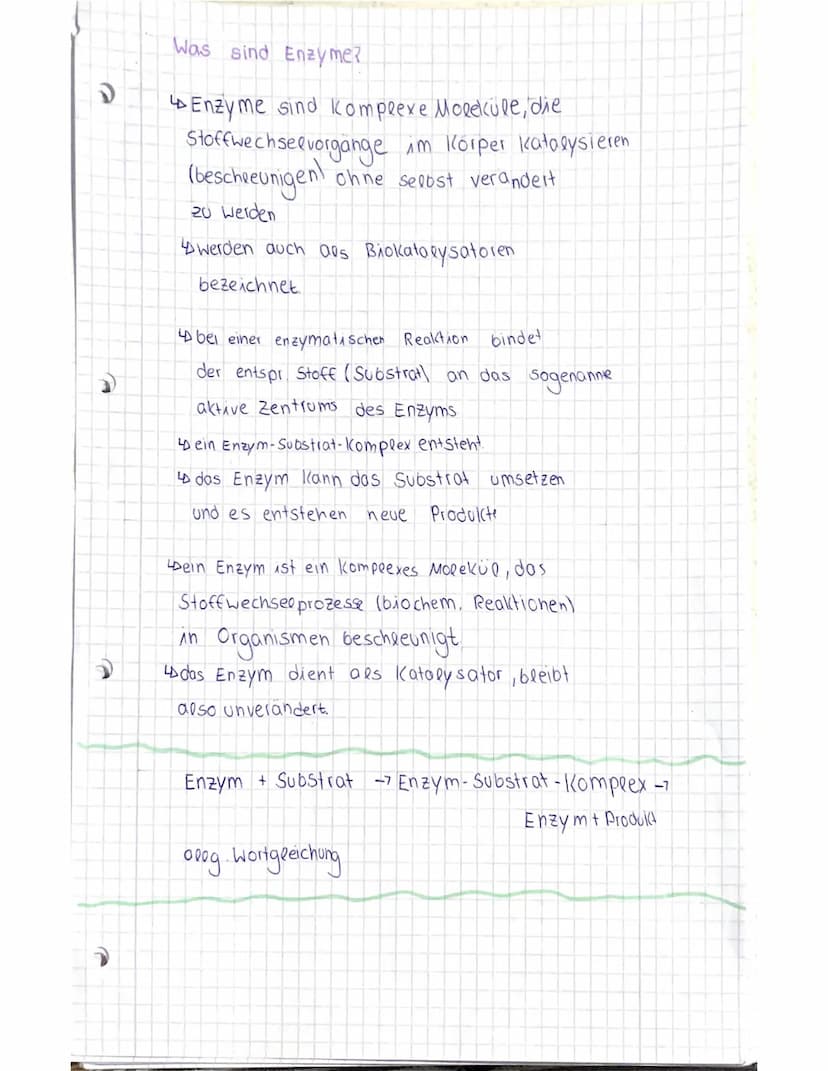 Was sind Enzyme?
↳ Enzyme sind komplexe Moleküle, die
Stoffwechselvorgänge im Körper katalysieren
(beschleunigen) ohne selbst verändert
zu werden
↳ werden auch als Biokatalysatoren
bezeichnet.
↳ bei einer enzymatischen Reaktion bindet
der entspr. Stoff (Substrat) an das sogenannne
aktive Zentrums des Enzyms
↳ ein Enzym-Substrat-Komplex entsteht.
↳ das Enzym kann das Substrat umsetzen
und es entstehen neue Produkte
↳ ein Enzym ist ein komplexes Molekül, das
Stoffwechselprozesse (biochem. Reaktionen)
in Organismen beschleunigt.
↳ das Enzym dient als Katalysator, bleibt
also unverändert.
Enzym + Substrat → Enzym-Substrat-Komplex →
Enzym + Produkt
allg. Wortgleichung